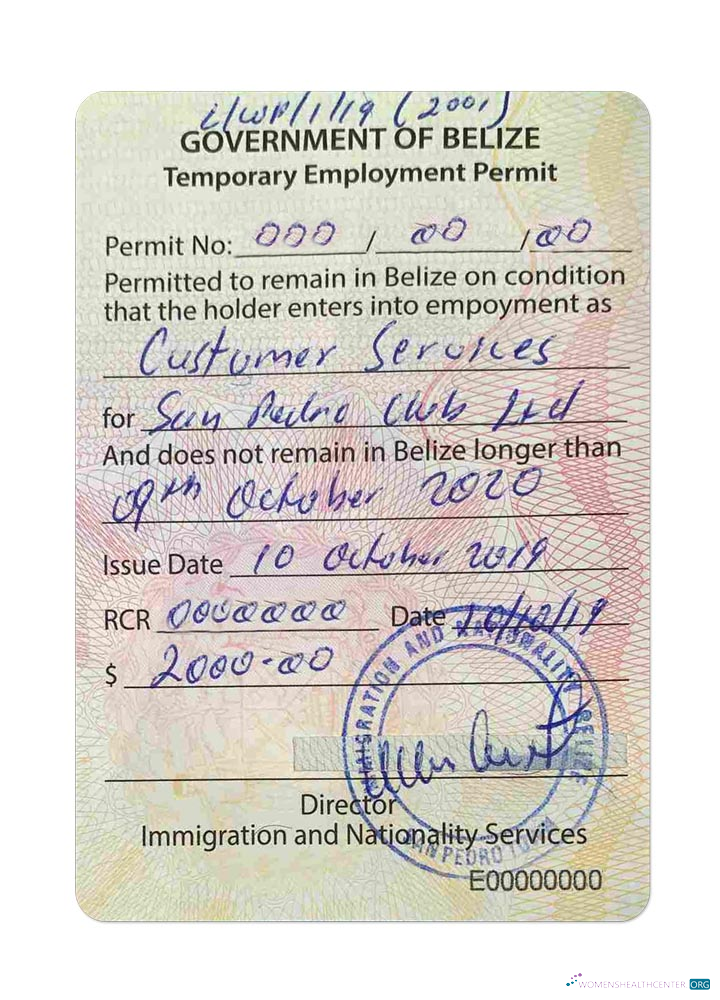 L/WP/1/19 (2001)
GOVERNMENT OF BELIZE
Temporary Employment Permit
Permit No: 000 / 00 / 00
Permitted to remain in Belize on condition
that the holder enters into empoyment as
Customer Services
for San Pedro Club Ltd
And does not remain in Belize longer than
09th October 2020
Issue Date 10 October 2019
RCR 0000000 Date 10/10/19
$ 2000-00
IMMIGRATION AND NATIONALITY BELIZE
SAN PEDRO TOWN
Director
Immigration and Nationality Services
E00000000
WOMENSHEALTHCENTER.ORG